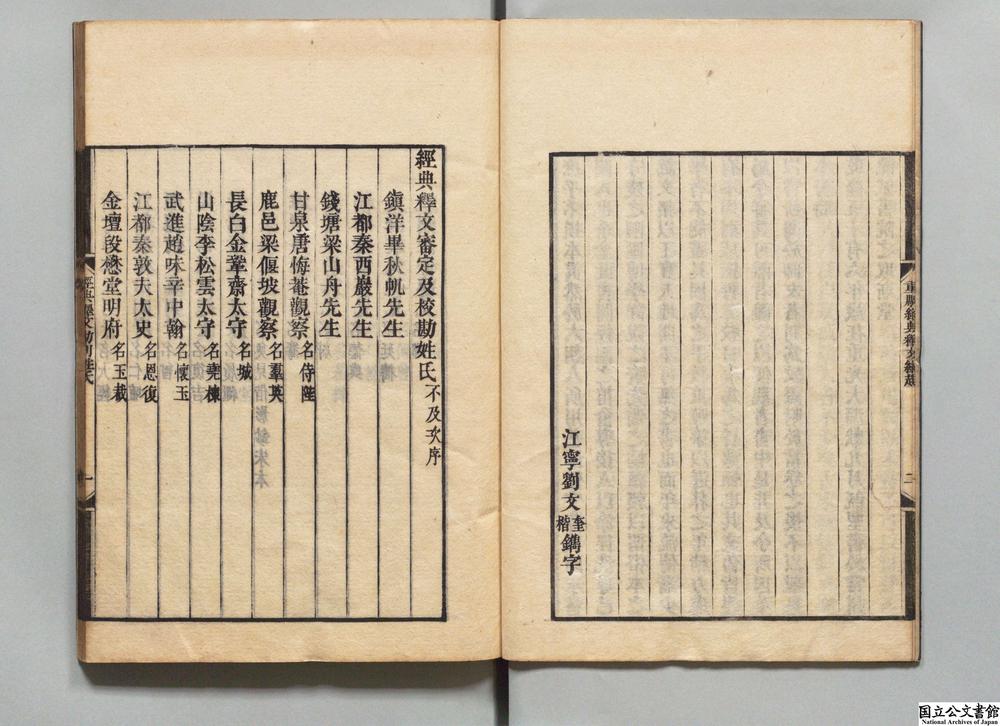 重雕經典釋文緣起
二
江寧劉文奎楷鐫字
經典釋文審定及校勘姓氏不及次序
鎮洋畢秋帆先生
江都秦西巖先生
錢塘梁山舟先生
甘泉唐悔菴觀察名侍陛
鹿邑梁偃坡觀察名羣英
長白金鞏齋太守名城
山陰李松雲太守名堯棟
武進趙味辛中翰名懷玉
江都秦敦夫太史名恩復
金壇段懋堂明府名玉裁
一
国立公文書館
National Archives of Japan